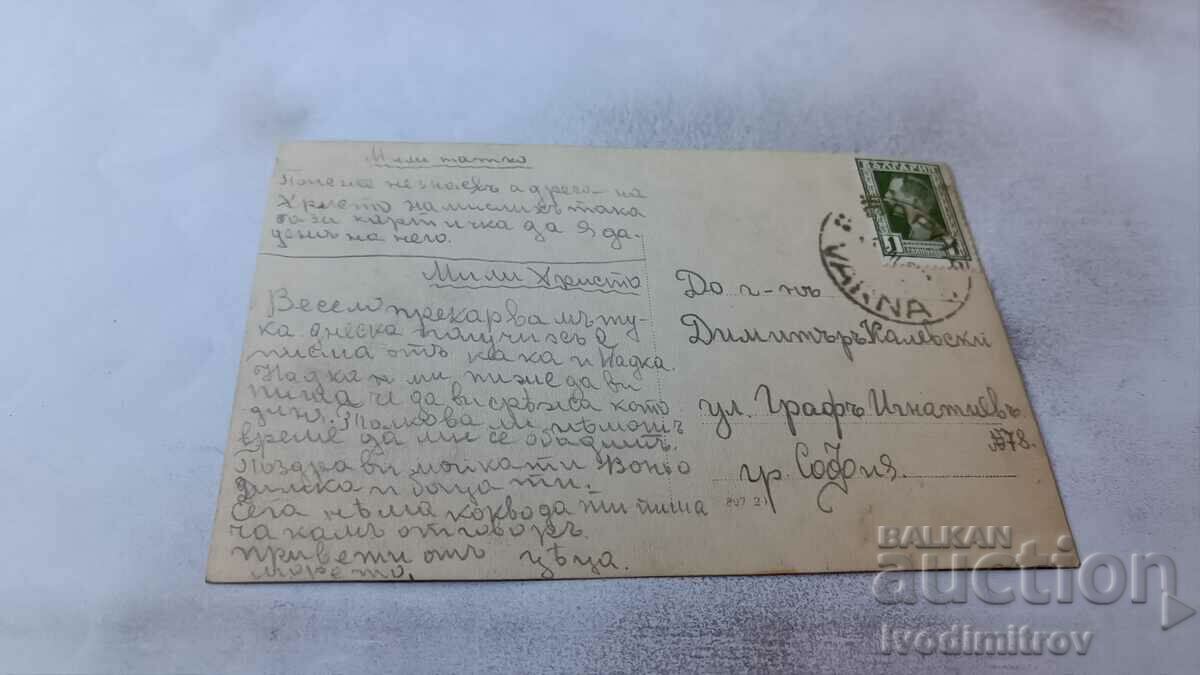 Мили татко
Понеже незнаехъ адреса на
Христо намислихъ така
тази картичка да я да-
дешъ на него.
Мили Христо
Весело прекарвамъ ту-
ка. днеска получихъ 2
писма отъ кака и Надка.
Надка ми пише да ви
пиша че да ви срѣжеа като
диня. Толкова ли нѣмашъ
време да ми се обадишъ.
Поздрави майка ти Воньо
Димка и баща ти.
Сега нѣма какво да ти пиша
чакамъ отговоръ
приветиотъ Цѣца.
морето.
До г-нъ
Димитъръ Калевски
ул. Графъ Игнатиевъ
№78.
гр. София.
БЪЛГАРИЯ
1 1
VARNA
BALKAN
auction
ivodimitrov